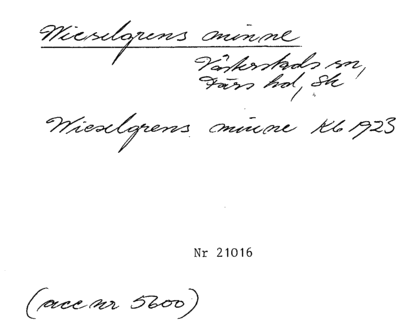 Wieselgrens minne
Västerstads sn,
Färs hd, Sk
Wieselgrens minne Kb 1923
Nr 21016
(acc nr 5600)